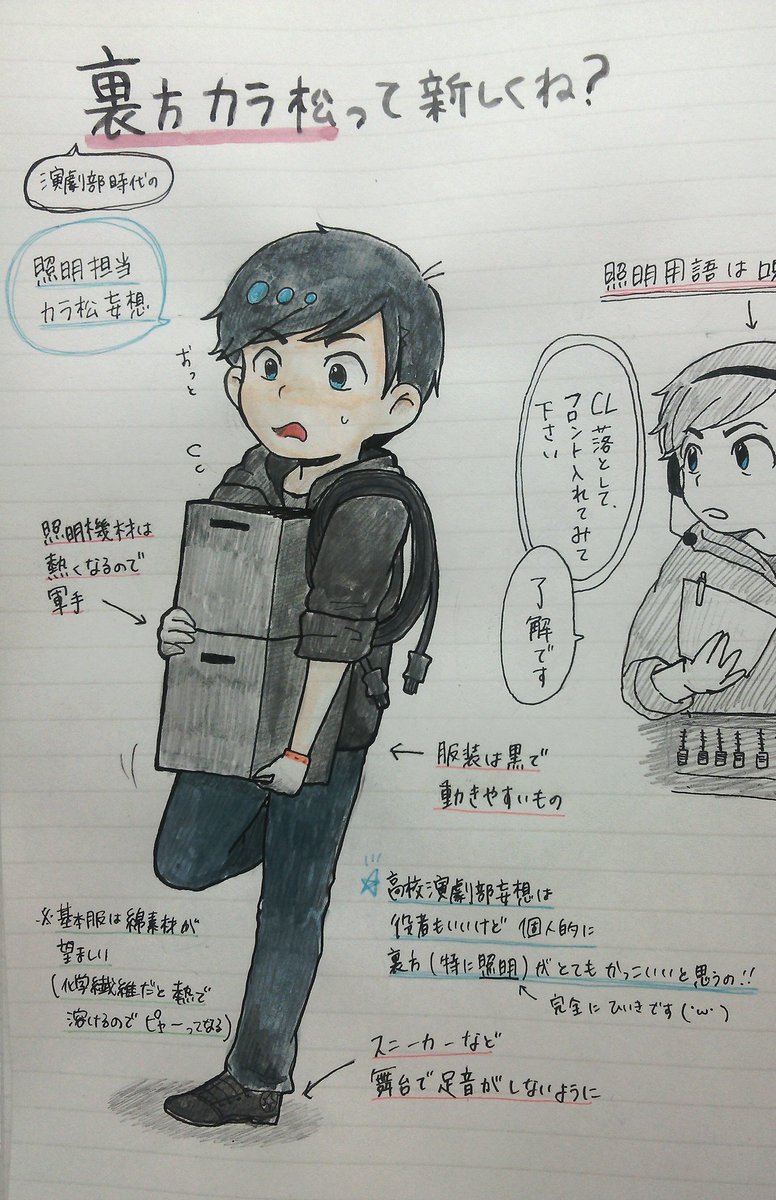 裏方カラ松って新しくね?
演劇部時代の
照明担当
カラ松妄想
おっと
照明機材は
熱くなるので
軍手
照明用語は
CL落として、
フロント入れてみて
下さい
了解です
服装は黒で
動きやすいもの
※基本服は綿素材が
望ましい
(化学繊維だと熱で
溶けるのでピャーってなる)
高校演劇部妄想は
役者もいいけど個人的に
裏方(特に照明)がとてもかっこいいと思うの!!
完全にひいきです(´ω`)
スニーカーなど
舞台で足音がしないように